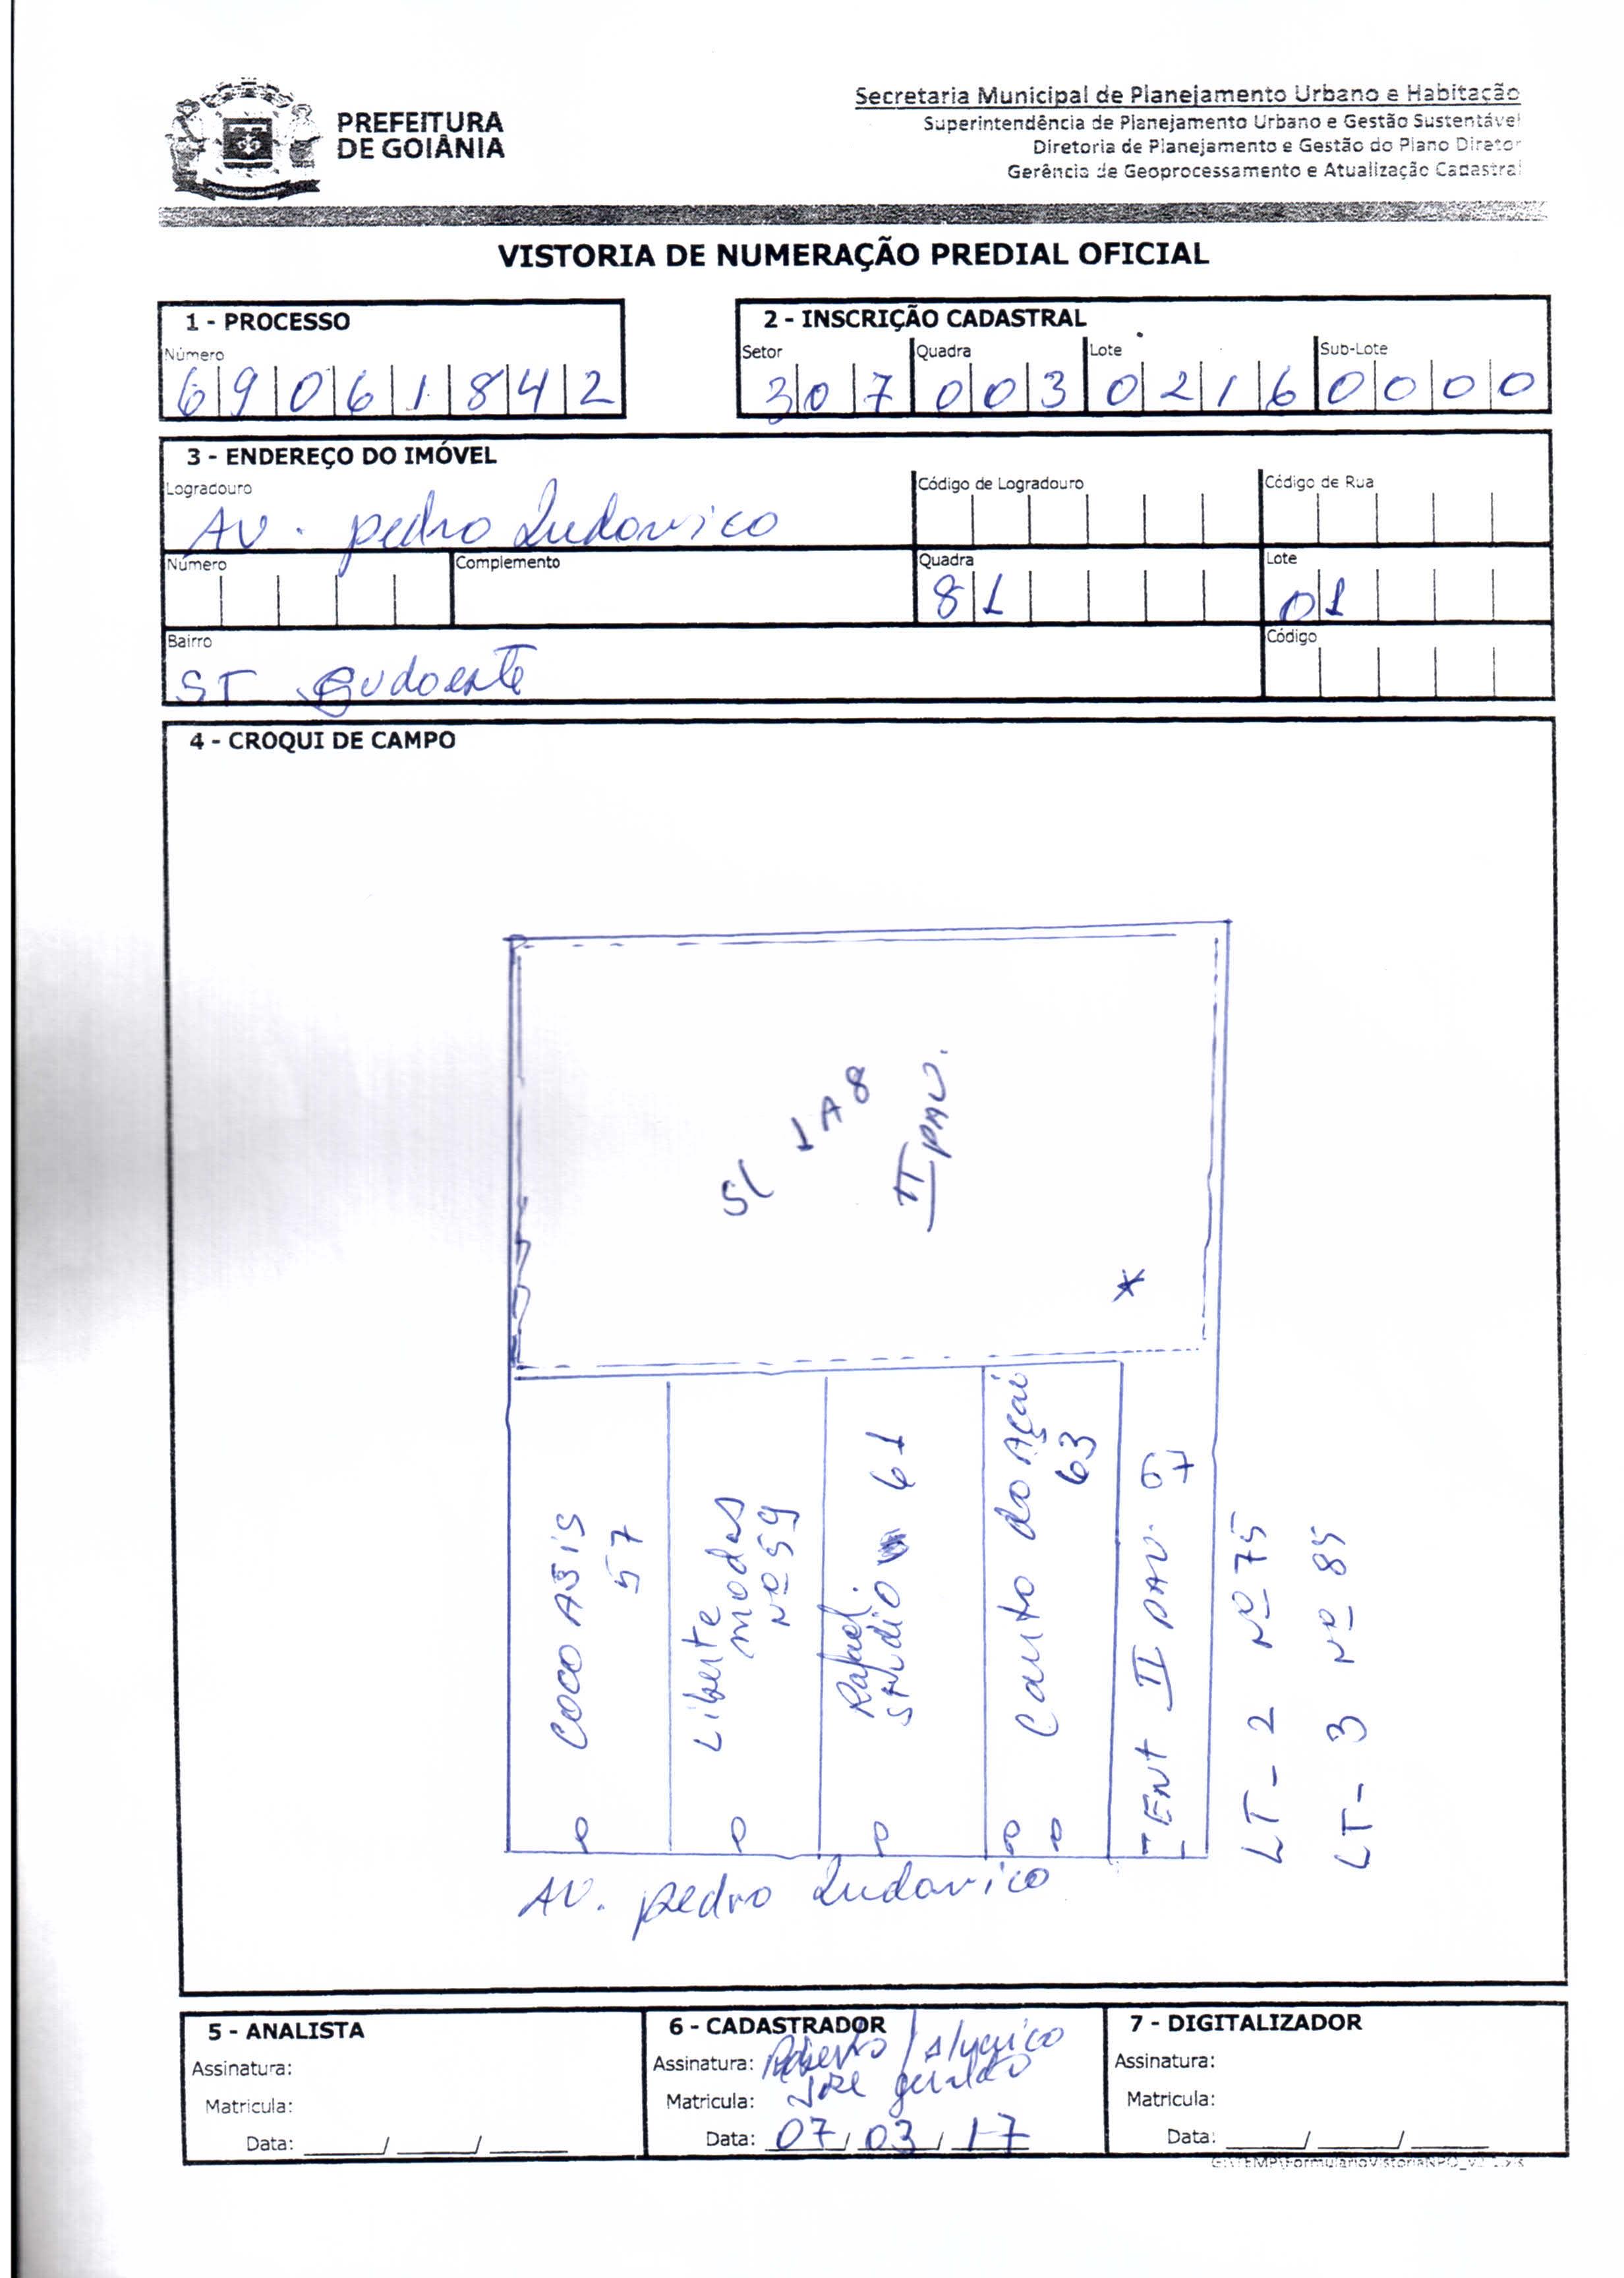 PREFEITURA
DE GOIÂNIA
Secretaria Municipal de Planejamento Urbano e Habitação
Superintendência de Planejamento Urbano e Gestão Sustentável
Diretoria de Planejamento e Gestão do Plano Diretor
Gerência de Geoprocessamento e Atualização Cadastral
VISTORIA DE NUMERAÇÃO PREDIAL OFICIAL
1 - PROCESSO
Número
69061842
2 - INSCRIÇÃO CADASTRAL
Setor Quadra Lote Sub-Lote
307 003 0216 0000
3 - ENDEREÇO DO IMÓVEL
Logradouro Código de Logradouro Código de Rua
AV. pedro Ludovico
Número Complemento Quadra Lote
81 01
Bairro Código
ST Sudoeste
4 - CROQUI DE CAMPO
SL 1 A 8
II PAV.
COCO ASIS
57
Liberte
modas
Nº 59
Rafael
STUDIO 61
Canto do Açai
63
ENT II PAV. 67
LT - 2 Nº 75
LT - 3 Nº 85
AV. pedro Ludovico
5 - ANALISTA
Assinatura:
Matricula:
Data: ___/___/___
6 - CADASTRADOR
Assinatura: Roberto /
José geraldo
Matricula:
Data: 07/03/17
7 - DIGITALIZADOR
Assinatura:
Matricula:
Data: ___/___/___